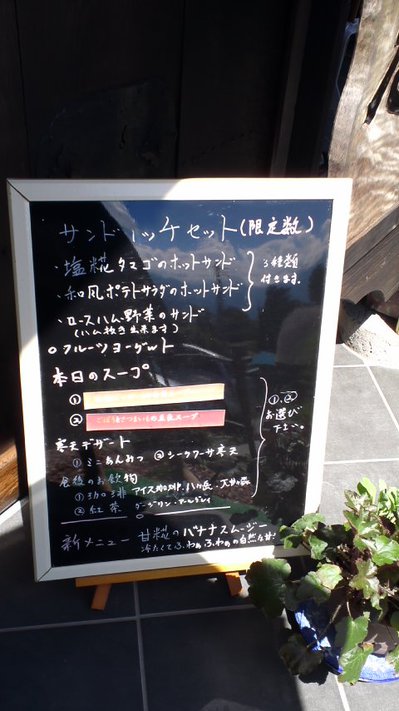 サンドイッチセット(限定数)
・塩糀タマゴのホットサンド
・和風ポテトサラダのホットサンド
3種類
付きます。
・ロースハム野菜のサンド
(ハム抜き出来ます)
○フルーツヨーグルト
本日のスープ
①
② スープ
①,②
お選び
下さい。
寒天デザート
①ミニあんみつ ②シークワーサ寒天
食後のお飲物
① アイス珈琲・
②紅茶 ダージリン・アールグレイ
新メニュー 甘糀のバナナスムージー
冷たくてふわぁふわぁの自然な甘さ